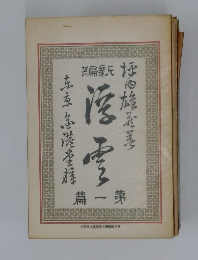 新編
坪内雄蔵著
浮雲
第一篇
東京 金港堂梓